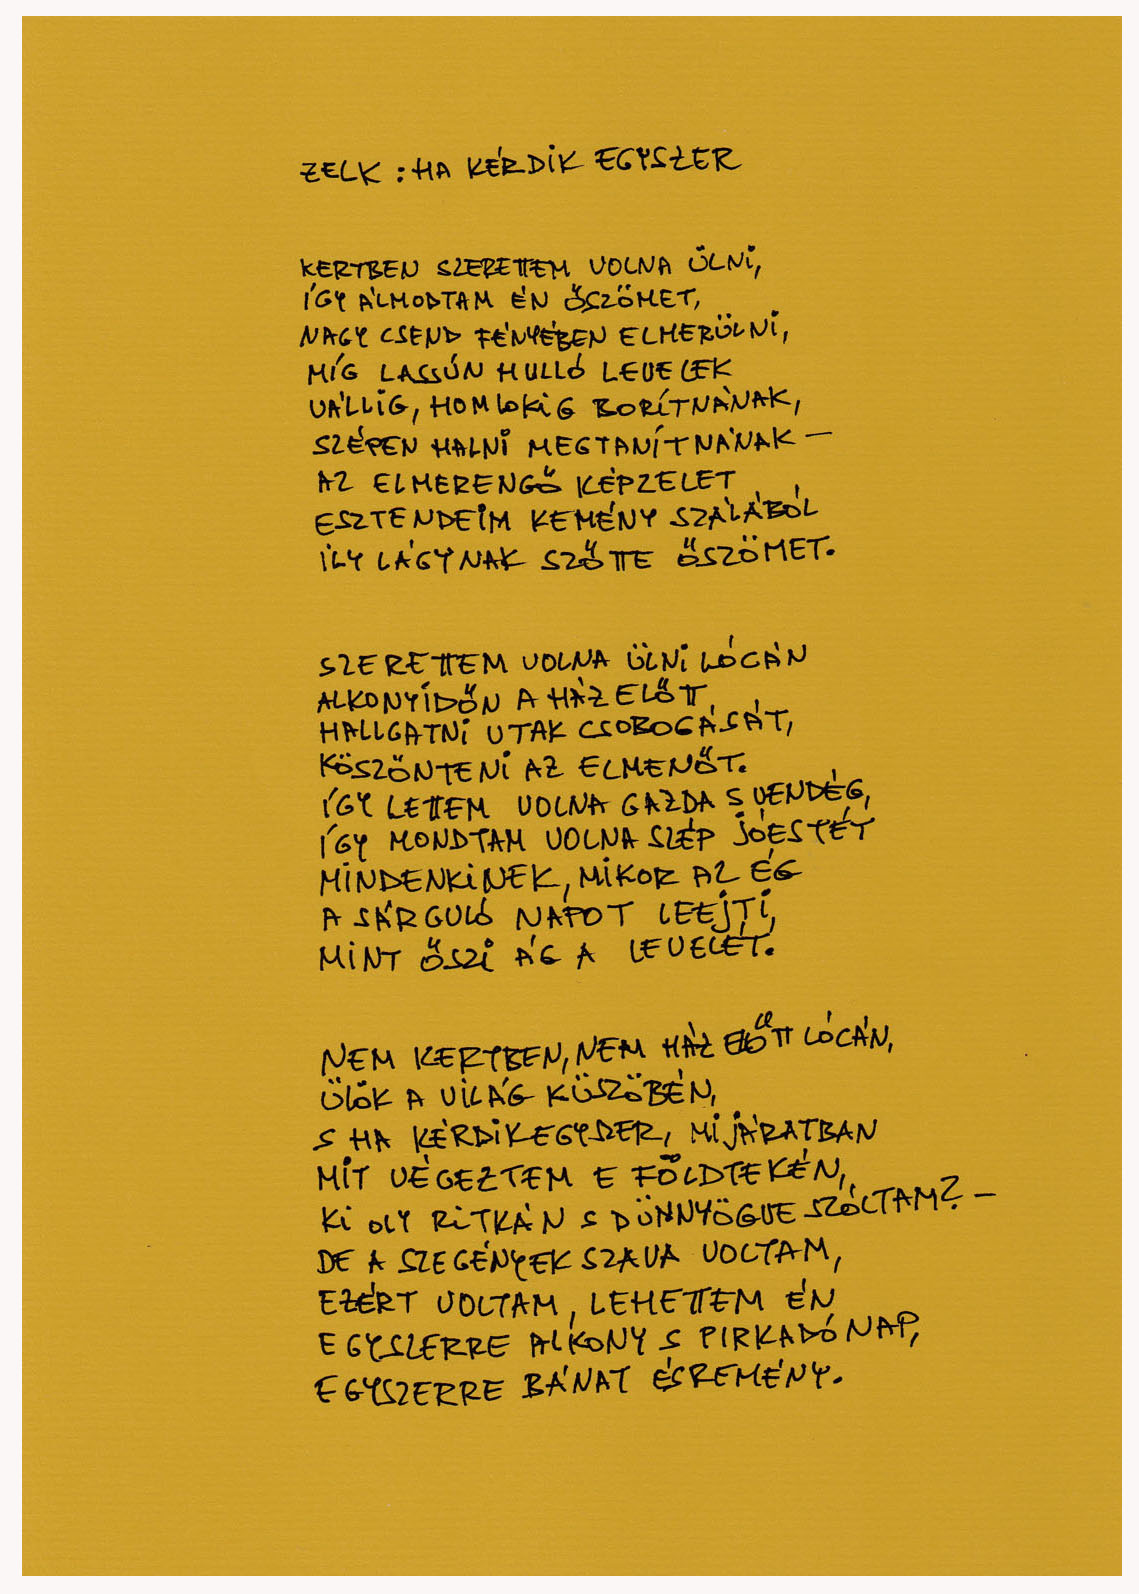 ZELK : HA KÉRDIK EGYSZER
KERTBEN SZERETTEM VOLNA ÜLNI,
ÍGY ÁLMODTAM ÉN ŐSZÖMET,
NAGY CSEND FÉNYÉBEN ELMERÜLNI,
MÍG LASSÚN HULLÓ LEVELEK
VÁLLIG, HOMLOKIG BORÍTNÁNAK,
SZÉPEN HALNI MEGTANÍTNÁNAK –
AZ ELMERENGŐ KÉPZELET
ESZTENDEIM KEMÉNY SZÁLÁBÓL
ILY LÁGYNAK SZŐTTE ŐSZÖMET.
SZERETTEM VOLNA ÜLNI LÓCÁN
ALKONYÍDŐN A HÁZ ELŐTT,
HALLGATNI UTAK CSOBOGÁSÁT,
KÖSZÖNTENI AZ ELMENŐT.
ÍGY LETTEM VOLNA GAZDA S VENDÉG,
ÍGY MONDTAM VOLNA SZÉP JÓESTÉT
MINDENKINEK, MIKOR AZ ÉG
A SÁRGULÓ NAPOT LEEJTI,
MINT ŐSZI ÁG A LEVELÉT.
NEM KERTBEN, NEM HÁZ ELŐTT LÓCÁN,
ÜLÖK A VILÁG KÜSZÖBÉN,
S HA KÉRDIK EGYSZER, MI JÁRATBAN
MIT VÉGEZTEM E FÖLDTEKÉN,
KI OLY RITKÁN S DÜNNYÖGVE SZÓLTAM? –
DE A SZEGÉNYEK SZAVA VOLTAM,
EZÉRT VOLTAM, LEHETTEM ÉN
EGYSZERRE ALKONY S PIRKADÓ NAP,
EGYSZERRE BÁNAT ÉS REMÉNY.